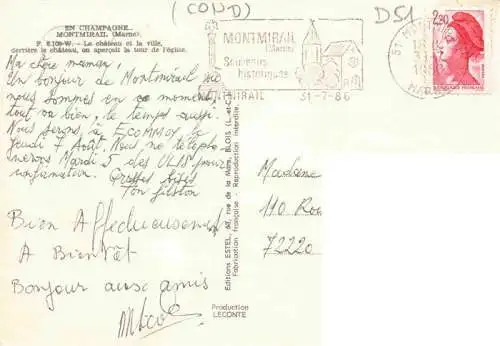 (COND)
D51
EN CHAMPAGNE
MONTMIRAIL (Marne).
P 5.108-W. - Le château et la ville,
derrière le château, on aperçoit la tour de l'église.
MONTMIRAIL
(Marne)
Souvenirs
historiques
MONTMIRAIL
31-7-86
2,20
Ma chère maman,
Un bonjour de Montmirail où
nous sommes en ce moment,
tout va bien, le temps aussi.
Nous serons à ECOMMOY le
Jeudi 7 Août. Nous te
Mardi 5 des ULIS pour
confirmation. Grosses bises
Ton fiston
Bien Affectueusement
A Bientôt
Bonjour aux amis
Editions ESTEL, 67, rue de la Mare, BLOIS (L.-&-C.)
Fabrication française - Reproduction interdite.
Madame
110 Rou
72220
Production
LECONTE